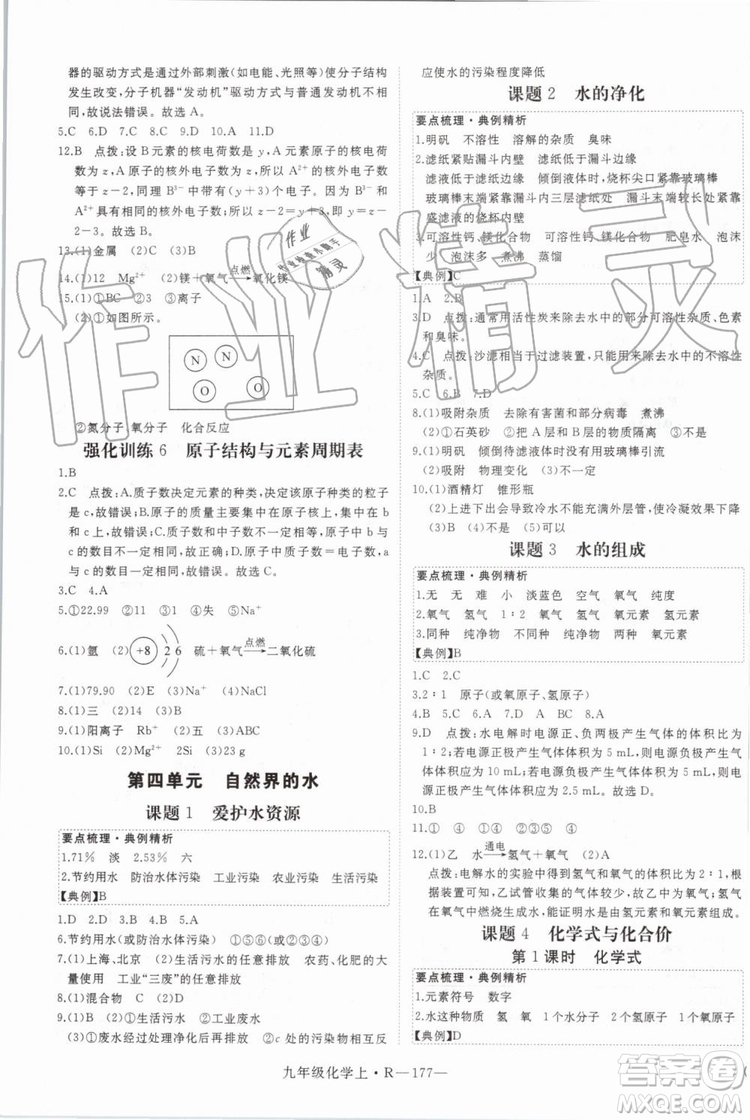 器的驱动方式是通过外部刺激(如电能、光照等)使分子结构
发生改变,分子机器“发动机”驱动与普通发动机不同,
故说法错误。故选A。
5.C 6.D 7.D 8.A 9.C 10.A 11.D
12.B 点拨:设B元素的核电荷数是y,A元素原子的核外电子
数是x,A原子的核外电子数为(y+x),B³⁻的核外电子和
A²⁺的核外电子数等于x-2,所以(y+x)-2,即y=
x-2-3。故选B。
13.(1)金属 (2)②③
14.(1)12 Mg²⁺ (2)镁+氧气 点燃→ 氧化镁
15.(1)①BC ②3 ③得到
(2)①如图所示。
N N O O
②氮分子 氧分子 化合反应
强化训练6 原子结构与元素周期表
1.B
2.C 点拨:A.质子数决定元素的种类,决定该元素种类的粒子
是c,故错误;B.原子的质量主要集中在原子核上,集中在a
和c上,故错误;C.质子数和中子数不一定相等,原子中b与
c的数目不一定相等,故正确;D.原子中质子数=电子数,a
与b数目不一定相等,故错误。故选C。
3.C 4.A
5.①22.99 ②11 ③11 ④失 ⑤Na⁺
6.(1)氩 (2) +8 2 6 硫+氧气 点燃→ 二氧化硫
7.(1)79.90 (2)E (3)Na⁺ (4)NaCl
8.(1)三 (2)4 (3)D
9.(1)阳离子 Rb⁺ (2)5 (3)ABC
10.(1)Si (2)Mg²⁺ (3)23 g
第四单元 自然界的水
课题1 爱护水资源
要点梳理·典例精析
1.71% 淡 2.53% 六
2.节约用水 防治水体污染 工业污染 农业污染 生活污染
【典例】B
1.D 2.D 3.A 4.B 5.A
6.节约用水(或防治水体污染) ①⑤⑥(或②③④)
7.(1)上海、北京 (2)生活污水的任意排放 农药、化肥的大
量使用 工业“三废”的任意排放
8.(1)混合物 (2)①生活污水 ②工业废水
(3)①废水经过处理后再排放 ②c处的污染物相互反
应使水的污染程度降低
课题2 水的净化
要点梳理·典例精析
1.明矾 不溶性 溶解的杂质 臭味
2.滤纸紧贴漏斗内壁 滤纸低于漏斗边缘
滤液低于滤纸边缘 倾倒液体时,烧杯尖口紧靠玻璃棒
玻璃棒下端紧靠三层滤纸处 漏斗末端较长处紧靠
盛滤液的烧杯内壁
3.可溶性钙、镁化合物 可溶性钙、镁化合物 肥皂水 泡沫
少 泡沫多 煮沸 蒸馏
【典例】C
1.A 2.D
3.D 点拨:通常用活性炭来除去水中的部分可溶性杂质、色素
和臭味。故选D。
4.C 点拨:沙滤相当于过滤装置,只能除去水中的不溶性
杂质。
5.C 6.D 7.B
8.(1)吸附杂质 去除有害菌和部分病毒 煮沸
(2)①石英砂 ②把A层和B层对换 (3)吸附 隔离
9.(1)明矾 (2)过滤 倾倒待滤液体时没有用玻璃棒引流
(3)吸附 物理变化
10.(1)酒精灯 锥形瓶
(2)上进下出会导致冷水不能充满冷凝管,冷凝效果差
(3)B (4)不是 (5)可以
课题3 水的组成
要点梳理·典例精析
1.无 无 难 小 淡蓝色 空气 氧气 氢气
2.氧气 氢气 1∶2 氧气 氢气 氧元素 氢元素
3.同种 纯净物 不同种 纯净物 氧元素
【典例】B
1.C 2.C
3.2∶1 原子(或氧原子、氢原子)
4.B 5.C 6.A 7.D A BC 8.A
9.D 点拨:水电解时电源正、负两极产生气体的体积比为
1∶2;若电源正极产生气体体积为5 mL,则电源负极产生
气体体积为10 mL;若电源负极产生气体体积为5 mL,则电
源正极产生气体体积为2.5 mL。故选D。
10.B
11.①⑤ ⑥ ②③⑤ ④
12.(1)乙 水 通电→ 氢气+氧气 (2)A
(3)电解水的实验中,产生氢气和氧气的体积比为2∶1,根
据装置可知,乙试管收集的气体是氢气
(4)大于 A (5)氢气在
氧气中燃烧生成水,证明水是由氢元素和氧元素组成。
课题4 化学式与化合价
第1课时 化学式
要点梳理·典例精析
1.元素符号 数字
2.水这种物质 氢 氧 1个水分子 2个氢 1个氧
【典例】D
九年级化学上·R—177—
作业精灵